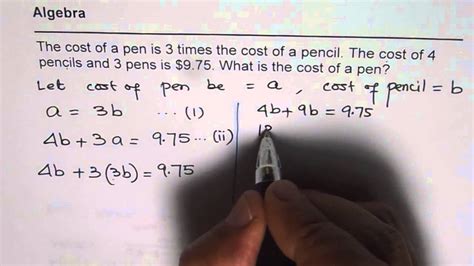 Algebra
The cost of a pen is 3 times the cost of a pencil. The cost of 4
pencils and 3 pens is $9.75. What is the cost of a pen?
Let cost of pen be = a , cost of pencil = b
a = 3b ... (1)
4b + 3a = 9.75 ... (ii)
4b + 3(3b) = 9.75
4b + 9b = 9.75